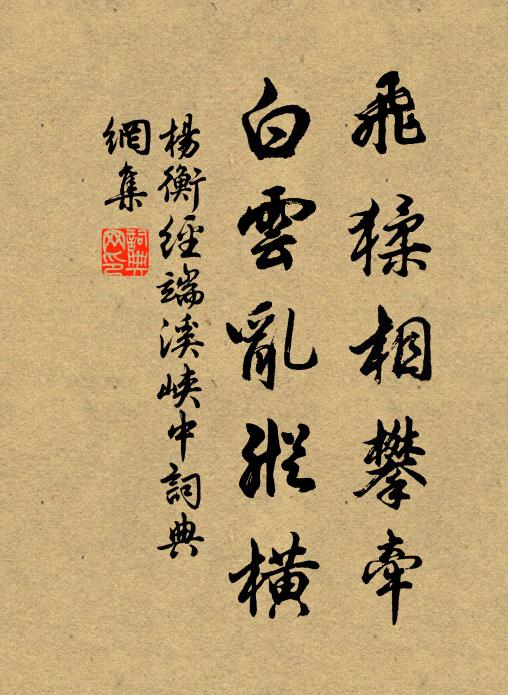 飛猱相攀牽
白雲亂縱橫
楊衡經端溪峽中詞典
網集
詞典網印